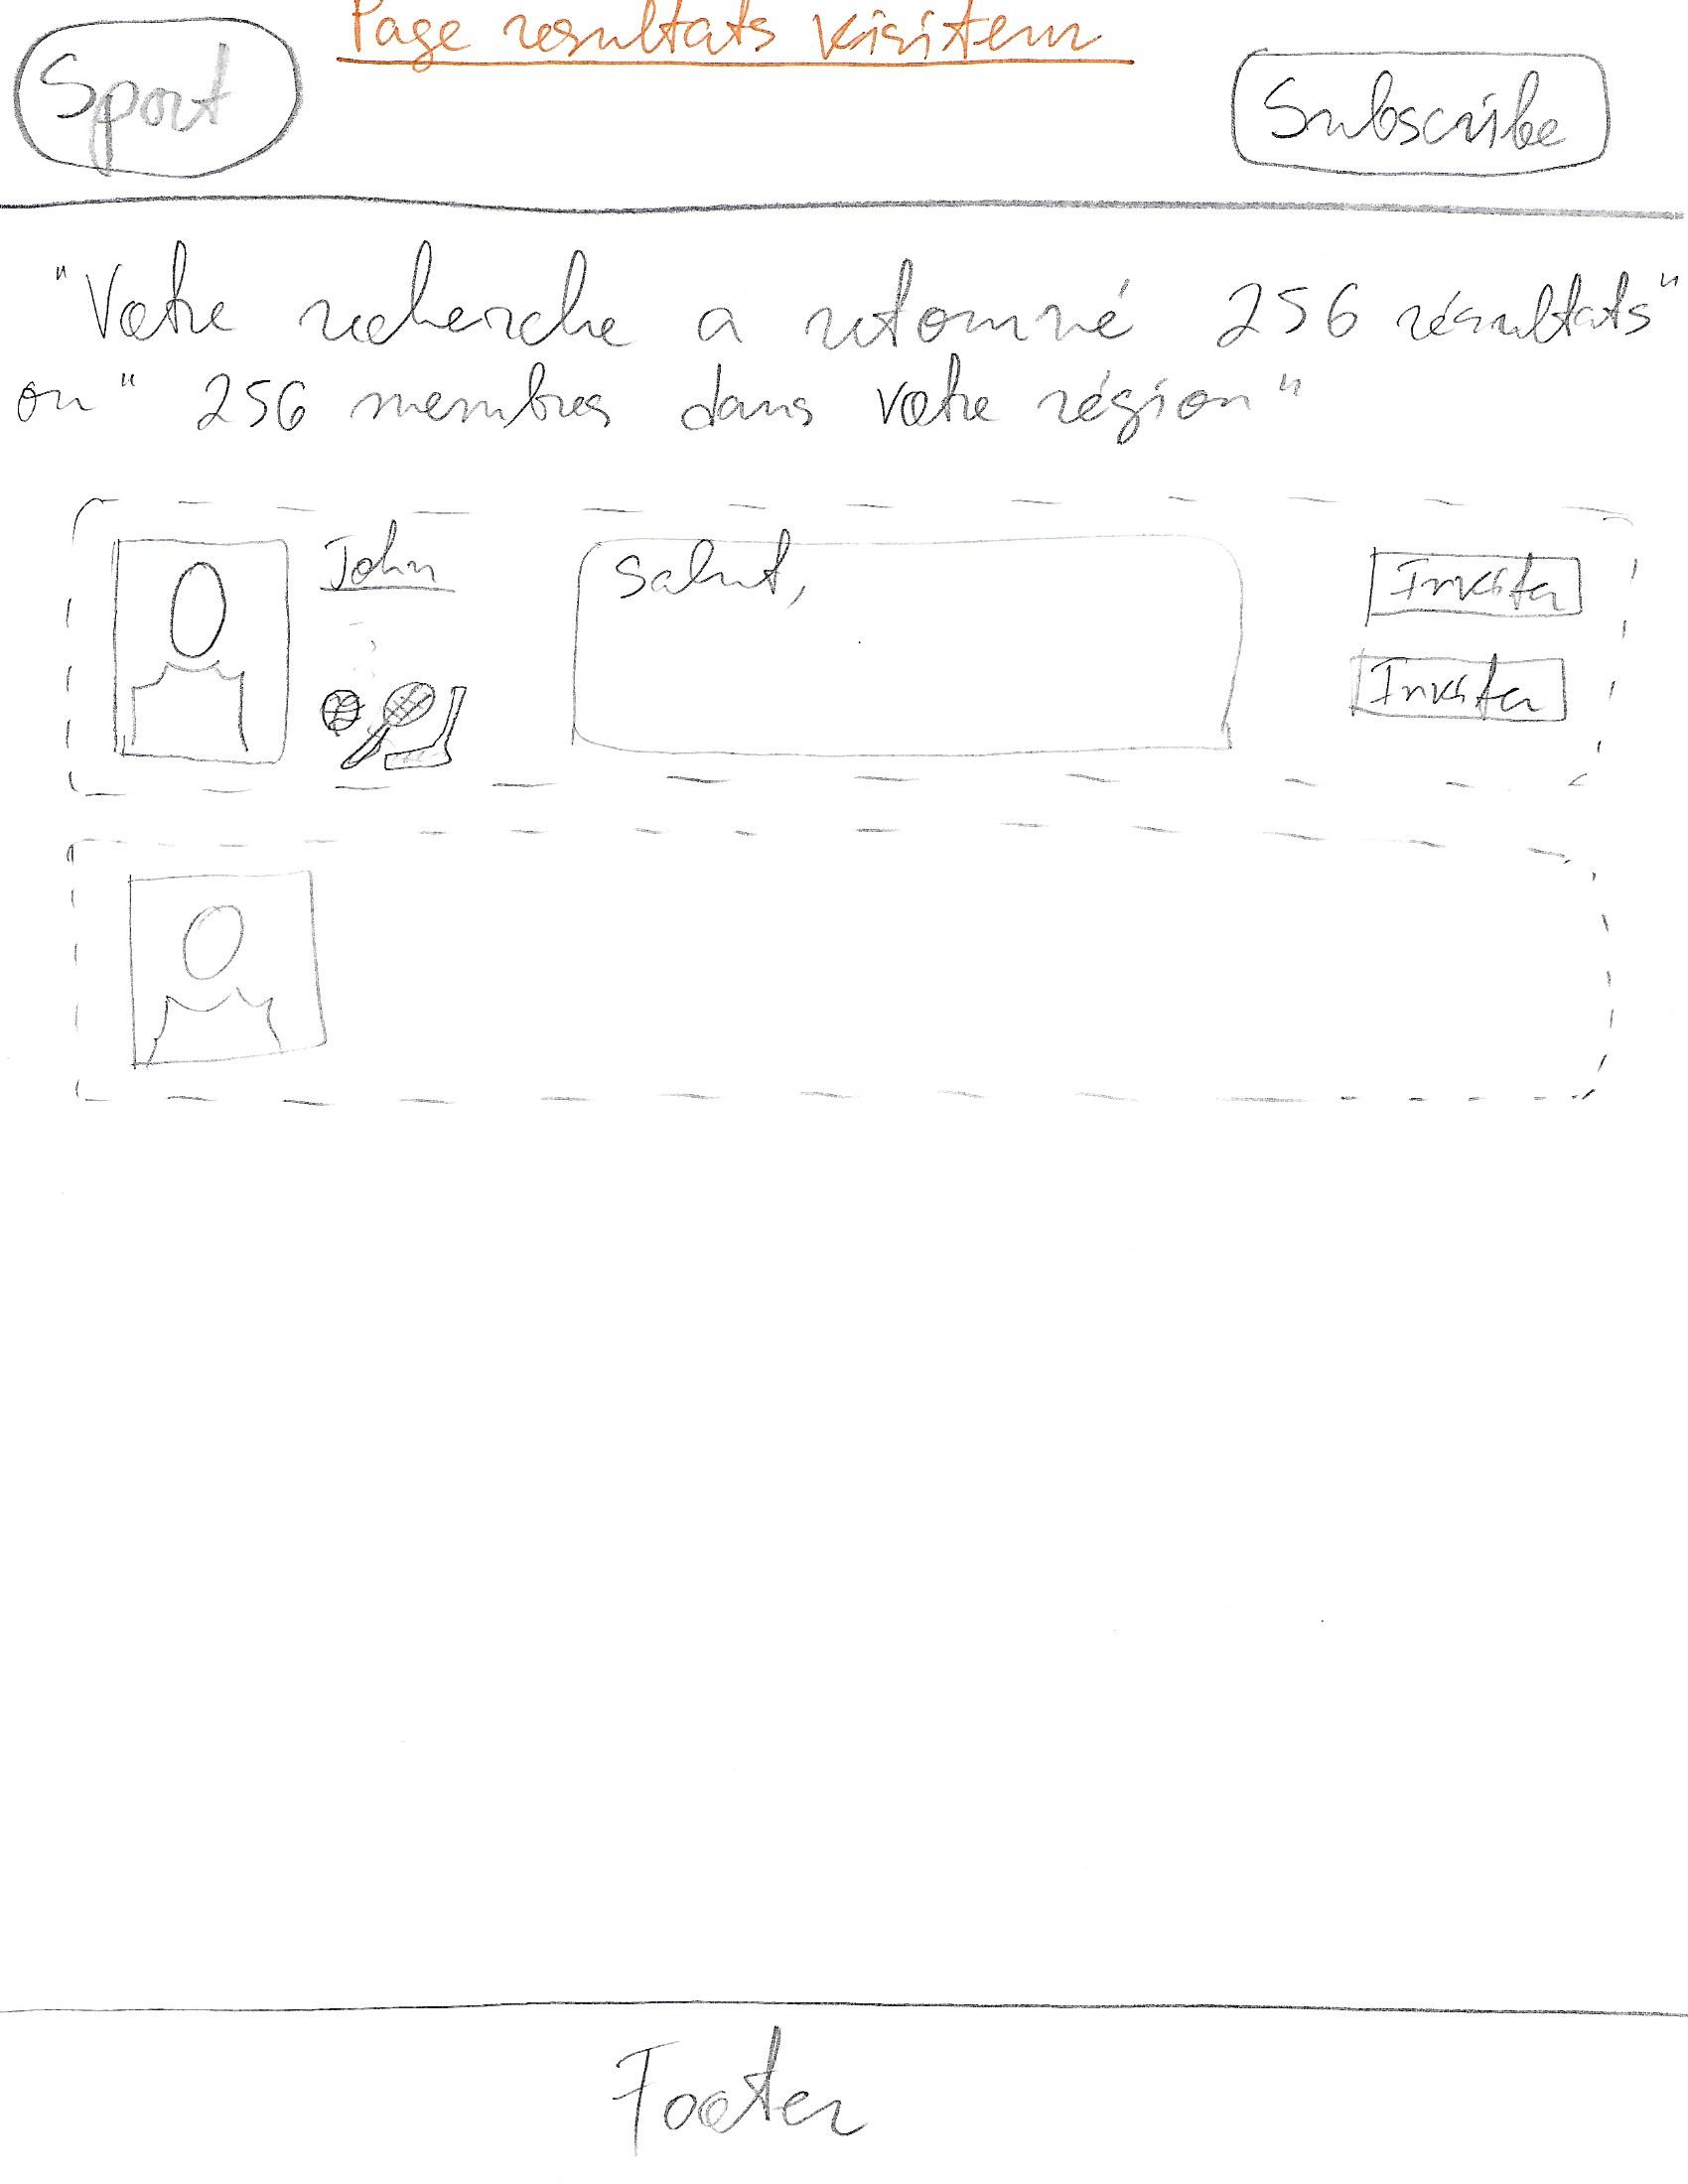 Page resultats visiteur
Sport
Subscribe
"Votre recherche a retourné 256 résultats"
ou "256 membres dans votre région"
John
Salut,
Inviter
Inviter
Footer